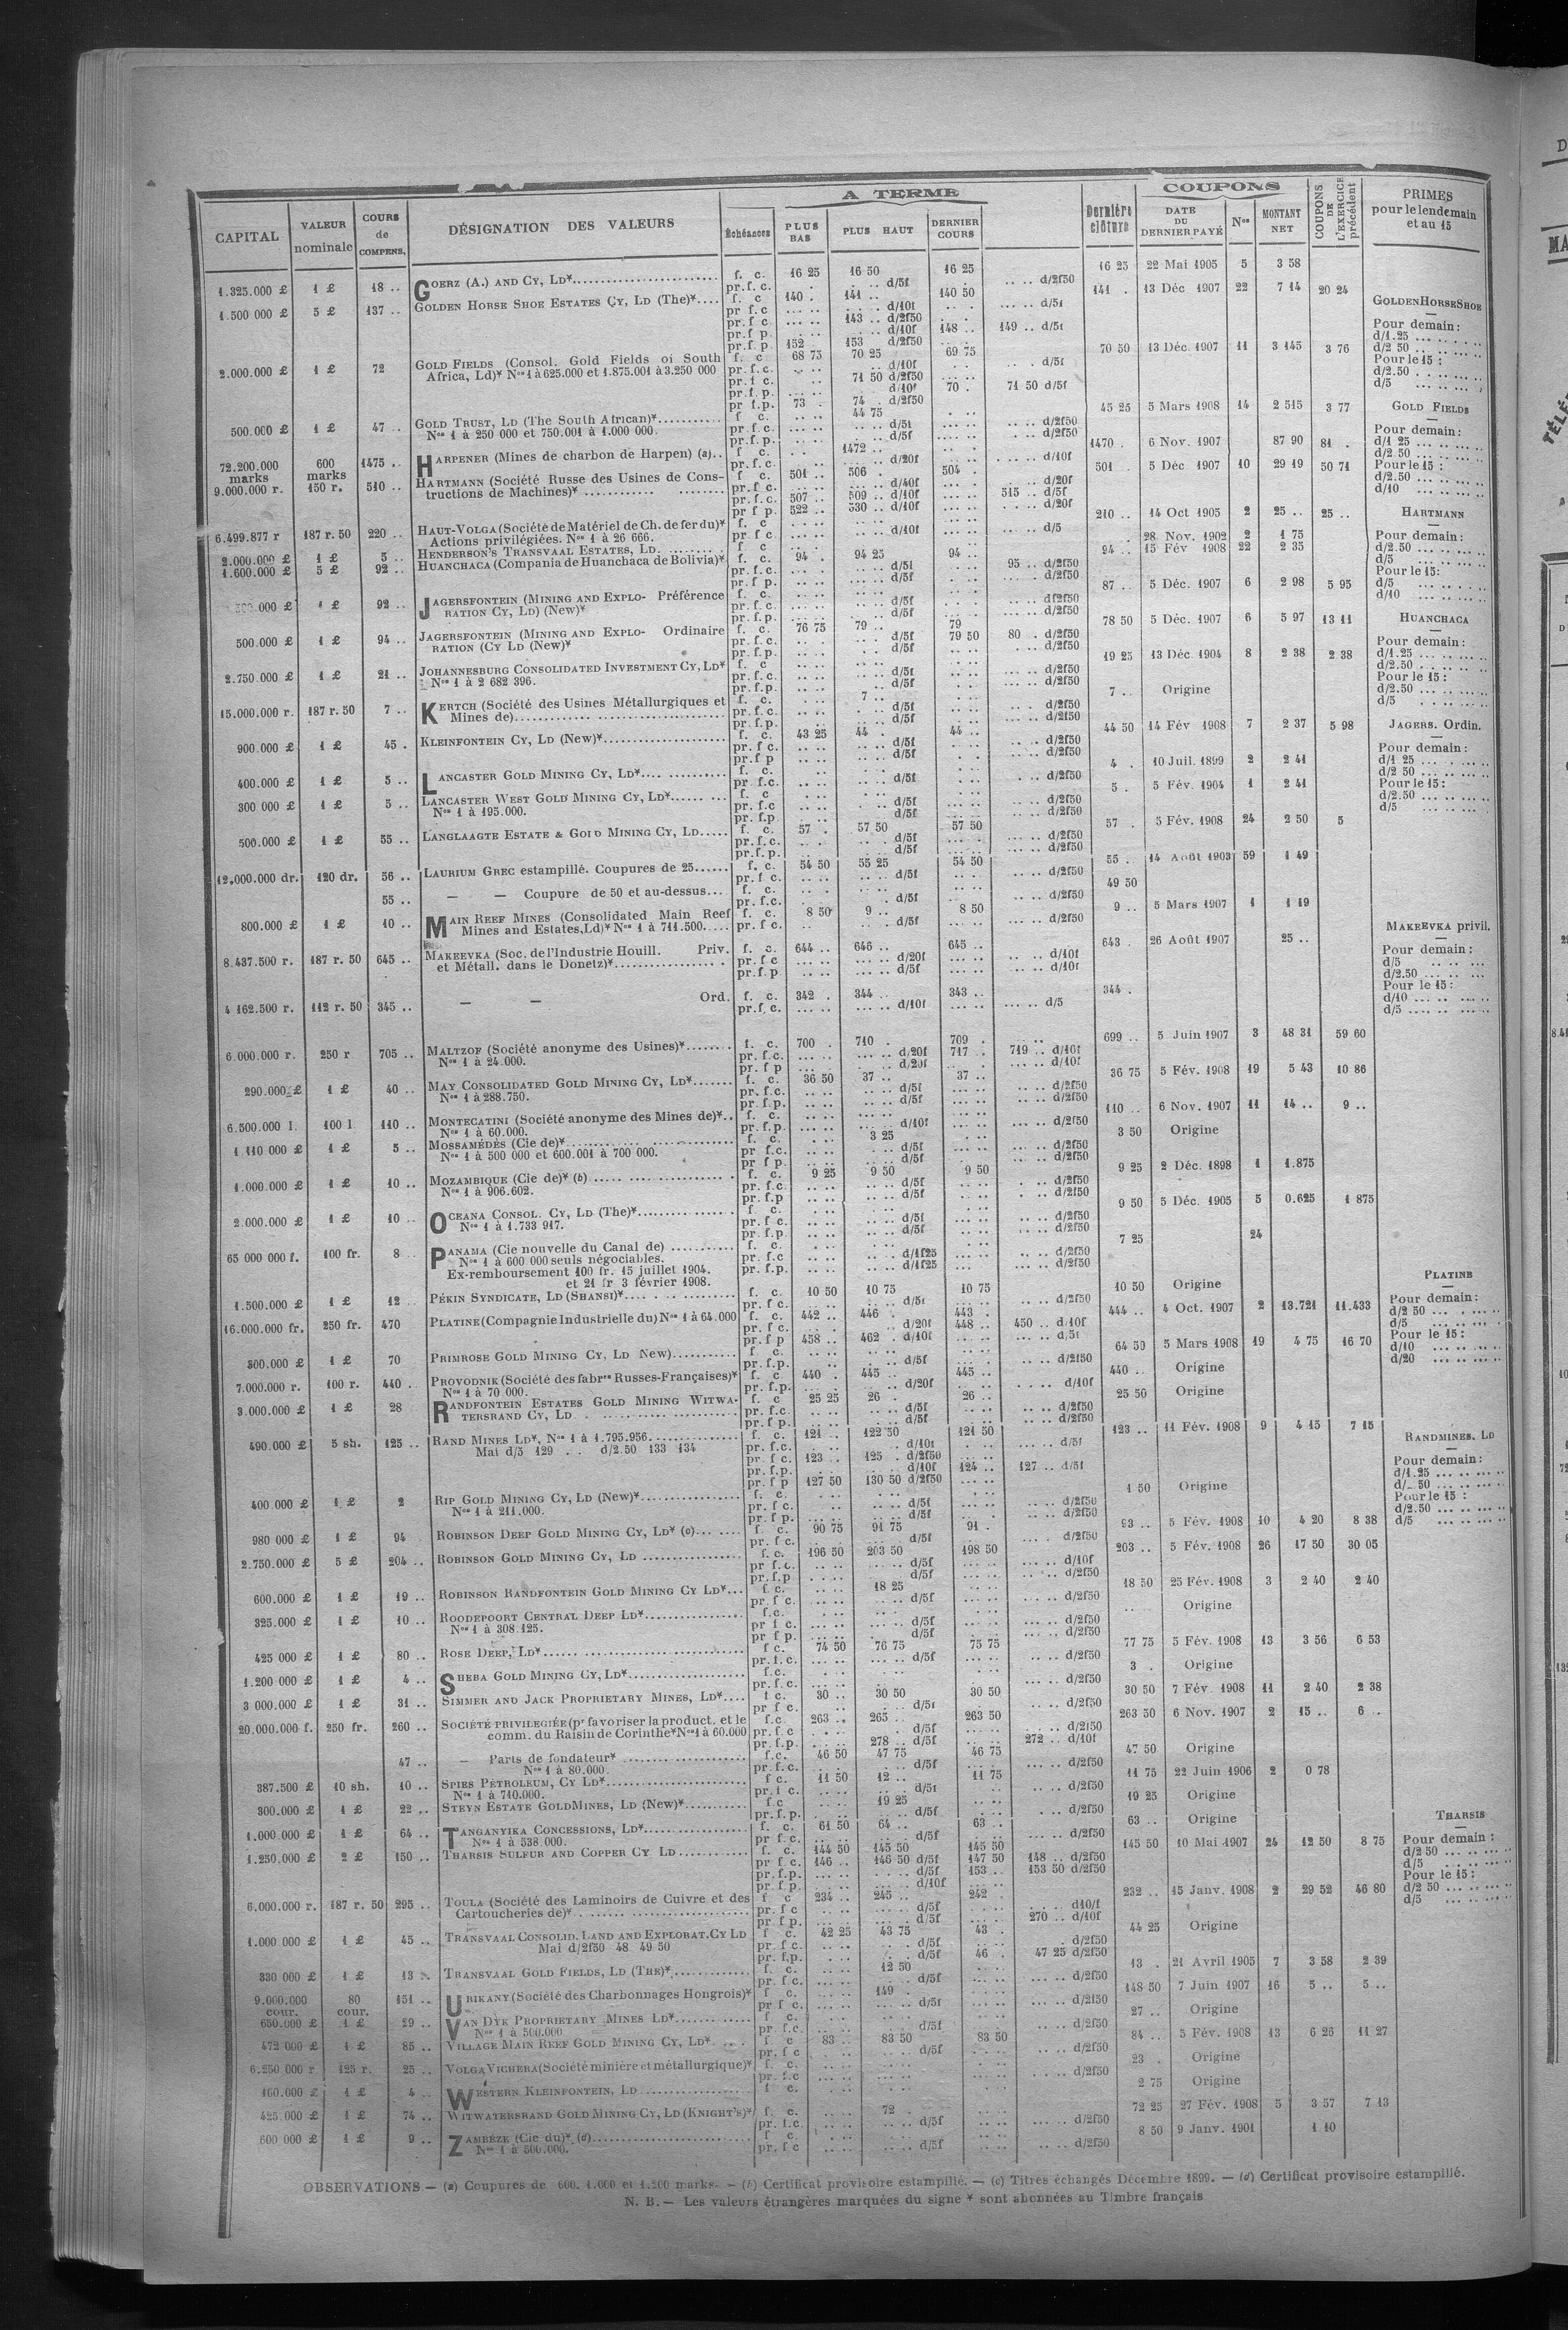 A TERME
COUPONS
CAPITAL | VALEUR nominale | COURS de COMPENS. | DÉSIGNATION DES VALEURS | Échéances | PLUS BAS | PLUS HAUT | DERNIER COURS | Dernière clôture | DATE DU DERNIER PAYÉ | Nos | MONTANT NET | COUPONS DE L'EXERCICE précédent | PRIMES pour le lendemain et au 15
1.325.000 £ | 1 £ | 18 .. | GOERZ (A.) AND CY, LD* | f. c. | 16 25 | 16 50 | 16 25 | 16 25 | 22 Mai 1905 | 5 | 3 58
pr.f.c. | d/5f | d/2f50
1.500 000 £ | 5 £ | 137 .. | GOLDEN HORSE SHOE ESTATES CY, LD (The)* | f. c | 140 . | 141 .. | 140 50 | 141 . | 13 Déc 1907 | 22 | 7 14 | 20 24
pr f.c | d/10f | d/5f
pr.f c | 143 .. d/2f50
pr.f p. | d/10f | 148 .. | 149 .. d/5f
pr.f p. | 152 . | 153 d/2f50
2.000.000 £ | 1 £ | 72 | GOLD FIELDS (Consol. Gold Fields of South | f. c | 68 75 | 70 25 | 69 75 | 70 50 | 13 Déc. 1907 | 11 | 3 145 | 3 76
Africa, Ld)* Nos 1 à 625.000 et 1.875.001 à 3.250 000 | pr.f.c. | d/10f | d/5f
pr.f c. | 71 50 d/2f50
pr.f.p. | d/10f | 70 . | 71 50 d/5f
pr f.p. | 73 . | 74 . d/2f50
500.000 £ | 1 £ | 47 .. | GOLD TRUST, LD (The South African)* | f c. | 44 75 | 45 25 | 5 Mars 1908 | 14 | 2 515 | 3 77
Nos 1 à 250 000 et 750.001 à 1.000 000. | pr.f.c. | d/5f | d/2f50
pr.f.p. | d/5f | d/2f50
72.200.000 marks | 600 marks | 1475 .. | HARPENER (Mines de charbon de Harpen) (a).. | f c. | 1472 .. | 1470 . | 6 Nov. 1907 | 87 90 | 81 .
pr.f.c. | d/20f | d/10f
9.000.000 r. | 150 r. | 510 .. | HARTMANN (Société Russe des Usines de Cons- | f c. | 501 .. | 506 . | 504 .. | 501 . | 5 Déc 1907 | 10 | 29 19 | 50 71
tructions de Machines)* | pr.f c. | d/40f | d/20f
pr.f.c. | 507 .. | 509 .. d/10f | 515 .. d/5f
pr f p. | 522 .. | 530 .. d/10f | d/20f
6.499.877 r | 187 r. 50 | 220 .. | HAUT-VOLGA (Société de Matériel de Ch. de fer du)* | f. c | 210 .. | 14 Oct 1905 | 2 | 25 .. | 25 ..
Actions privilégiées. Nos 1 à 26 666. | pr f c | d/10f | d/5
2.000.000 £ | 1 £ | 5 .. | HENDERSON'S TRANSVAAL ESTATES, LD. | f c | 28 Nov. 1902 | 2 | 1 75
1.600.000 £ | 5 £ | 92 .. | HUANCHACA (Compania de Huanchaca de Bolivia)* | f. c. | 94 . | 94 25 | 94 .. | 94 .. | 15 Fév 1908 | 22 | 2 35
pr.f.c. | d/5f | 95 .. d/2f50
pr.f p. | d/5f | d/2f50
1 £ | 92 .. | JAGERSFONTEIN (MINING AND EXPLO- Préférence | f. c. | 87 .. | 5 Déc. 1907 | 6 | 2 98 | 5 95
RATION CY, LD) (New)* | pr.f.c. | d/5f | d/2f50
pr.f.p. | d/5f | d/2f50
500.000 £ | 1 £ | 94 .. | JAGERSFONTEIN (MINING AND EXPLO- Ordinaire | f. c. | 76 75 | 79 .. | 79 | 78 50 | 5 Déc. 1907 | 6 | 5 97 | 13 11
RATION (CY LD (New)* | pr.f.c. | d/5f | 79 50 | 80 . d/2f50
pr.f.p. | d/5f | d/2f50
2.750.000 £ | 1 £ | 21 .. | JOHANNESBURG CONSOLIDATED INVESTMENT CY, LD* | f. c | 19 25 | 13 Déc. 1904 | 8 | 2 38 | 2 38
Nos 1 à 2 682 396. | pr.f.c. | d/5f | d/2f50
pr.f.p. | d/5f | d/2f50
15.000.000 r. | 187 r. 50 | 7 .. | KERTCH (Société des Usines Métallurgiques et | f. c. | 7 .. | 7 .. | Origine
Mines de) | pr.f.c. | d/5f | d/2f50
pr.f.p. | d/5f | d/2f50
900.000 £ | 1 £ | 45 . | KLEINFONTEIN CY, LD (New)* | f. c. | 43 25 | 44 . | 44 .. | 44 50 | 14 Fév 1908 | 7 | 2 37 | 5 98
pr. f c. | d/5f | d/2f50
pr.f p | d/5f | d/2f50
400.000 £ | 1 £ | 5 .. | LANCASTER GOLD MINING CY, LD* | f. c. | 4 . | 10 Juil. 1899 | 2 | 2 41
pr f.c. | d/5f | d/2f50
300 000 £ | 1 £ | 5 .. | LANCASTER WEST GOLD MINING CY, LD* | f. c | 5 . | 5 Fév. 1904 | 1 | 2 41
Nos 1 à 195.000. | pr. f.c | d/5f | d/2f50
pr. f.p | d/5f | d/2f50
500.000 £ | 1 £ | 55 .. | LANGLAAGTE ESTATE & GOLD MINING CY, LD | f. c. | 57 . | 57 50 | 57 50 | 57 . | 5 Fév. 1908 | 24 | 2 50 | 5
pr.f.c. | d/5f | d/2f50
pr.f.p. | d/5f | d/2f50
12.000.000 dr. | 120 dr. | 56 .. | LAURIUM GREC estampillé. Coupures de 25 | f. c. | 54 50 | 55 25 | 54 50 | 55 . | 14 Août 1903 | 59 | 1 49
pr.f c. | d/5f | d/2f50
55 .. | — — Coupure de 50 et au-dessus... | f. c. | 49 50
pr.f.c. | d/5f | d/2f50
800.000 £ | 1 £ | 10 .. | MAIN REEF MINES (Consolidated Main Reef | f. c. | 8 50 | 9 .. | 8 50 | 9 .. | 5 Mars 1907 | 1 | 1 19
Mines and Estates,Ld)* Nos 1 à 711.500. | pr.f c. | d/5f | d/2f50
8.437.500 r. | 187 r. 50 | 645 .. | MAKEEVKA (Soc. de l'Industrie Houill. Priv. | f. c. | 644 .. | 646 .. | 645 .. | 643 . | 26 Août 1907 | 25 ..
et Métall. dans le Donetz)* | pr.f c | d/20f | d/10f
pr.f.p | d/5f | d/10f
4 162.500 r. | 112 r. 50 | 345 .. | — — Ord. | f. c. | 342 . | 344 .. | 343 .. | 344 .
pr.f.c. | d/10f | d/5
6.000.000 r. | 250 r | 705 .. | MALTZOF (Société anonyme des Usines)* | f. c. | 700 . | 710 . | 709 . | 699 .. | 5 Juin 1907 | 3 | 48 31 | 59 60
Nos 1 à 24.000. | pr. f.c. | d/20f | 717 . | 719 .. d/10f
pr. f p | d/20f | d/10f
290.000 £ | 1 £ | 40 .. | MAY CONSOLIDATED GOLD MINING CY, LD* | f. c. | 36 50 | 37 .. | 37 .. | 36 75 | 5 Fév. 1908 | 19 | 5 43 | 10 86
Nos 1 à 288.750. | pr.f.c. | d/5f | d/2f50
pr.f.p. | d/5f | d/2f50
6.500.000 l. | 100 l | 110 .. | MONTECATINI (Société anonyme des Mines de)*.. | f. c. | 110 .. | 6 Nov. 1907 | 11 | 14 .. | 9 ..
Nos 1 à 60.000. | pr.f.p. | d/10f | d/2f50
1 110 000 £ | 1 £ | 5 .. | MOSSAMÉDÈS (Cie de)* | f. c. | 3 25 | 3 50 | Origine
Nos 1 à 500 000 et 600.001 à 700 000. | pr f.c. | d/5f | d/2f50
pr f p. | d/5f | d/2f50
1.000.000 £ | 1 £ | 10 .. | MOZAMBIQUE (Cie de)* (b) | f. c. | 9 25 | 9 50 | 9 50 | 9 25 | 2 Déc. 1898 | 1 | 1.875
Nos 1 à 906.602. | pr. f.c. | d/5f | d/2f50
pr. f.p | d/5f | d/2f50
2.000.000 £ | 1 £ | 10 .. | OCEANA CONSOL. CY, LD (The)* | f. c. | 9 50 | 5 Déc. 1905 | 5 | 0.625 | 1 875
Nos 1 à 1.733 917. | pr.f c. | d/5f | d/2f50
pr.f.p. | d/5f | d/2f50
65 000 000 f. | 100 fr. | 8 .. | PANAMA (Cie nouvelle du Canal de) | f. c. | 7 25 | 24
Nos 1 à 600 000 seuls négociables. | pr. f.c | d/1f25 | d/2f50
Ex-remboursement 100 fr. 15 juillet 1904. | pr. f.p. | d/1f25 | d/2f50
et 21 fr 3 février 1908.
1.500.000 £ | 1 £ | 12 .. | PÉKIN SYNDICATE, LD (SHANSI)* | f. c. | 10 50 | 10 75 | 10 75 | 10 50 | Origine
pr f c. | d/5f | d/2f50
16.000.000 fr. | 250 fr. | 470 | PLATINE (Compagnie Industrielle du) Nos 1 à 64.000 | f. c. | 442 .. | 446 . | 443 . | 444 .. | 4 Oct. 1907 | 2 | 13.721 | 11.433
pr. f c. | d/20f | 448 .. | 450 .. d/10f
pr. f p | 458 .. | 462 . d/10f | d/5f
300.000 £ | 1 £ | 70 | PRIMROSE GOLD MINING CY, LD New) | f c. | 64 50 | 5 Mars 1908 | 19 | 4 75 | 16 70
pr.f.p. | d/5f | d/2f50
7.000.000 r. | 100 r. | 440 . | PROVODNIK (Société des fabres Russes-Françaises)* | f. c | 440 . | 445 .. | 445 .. | 440 .. | Origine
Nos 1 à 70 000. | pr. f.p. | d/20f | d/10f
3.000.000 £ | 1 £ | 28 | RANDFONTEIN ESTATES GOLD MINING WITWA- | f. c | 25 25 | 26 . | 26 .. | 25 50 | Origine
TERSRAND CY, LD | pr.f.c. | d/5f | d/2f50
pr.f p. | d/5f | d/2f50
490.000 £ | 5 sh. | 125 .. | RAND MINES LD*, Nos 1 à 1.795.956 | f. c. | 121 .. | 122 50 | 121 50 | 123 .. | 11 Fév. 1908 | 9 | 4 15 | 7 15
Mai d/5 129 . . d/2.50 133 134 | pr.f.c. | d/10f | d/5f
pr f c. | 123 .. | 125 . d/2f50
pr.f.p. | d/10f | 124 .. | 127 .. d/5f
pr.f p | 127 50 | 130 50 d/2f50
400.000 £ | 1 £ | 2 | RIP GOLD MINING CY, LD (New)* | f. c. | 1 50 | Origine
Nos 1 à 211.000. | pr.f c. | d/5f | d/2f50
pr f p. | d/5f | d/2f50
980 000 £ | 1 £ | 94 . | ROBINSON DEEP GOLD MINING CY, LD* (c) | f. c. | 90 75 | 91 75 | 91 . | 93 .. | 5 Fév. 1908 | 10 | 4 20 | 8 38
pr. f c. | d/5f | d/2f50
2.750.000 £ | 5 £ | 204 .. | ROBINSON GOLD MINING CY, LD | f. c. | 196 50 | 203 50 | 198 50 | 203 .. | 5 Fév. 1908 | 26 | 17 50 | 30 05
pr f.c. | d/5f | d/10f
pr.f.p | d/5f | d/2f50
600.000 £ | 1 £ | 19 .. | ROBINSON RANDFONTEIN GOLD MINING CY LD* | f. c. | 18 25 | 18 50 | 25 Fév. 1908 | 3 | 2 40 | 2 40
pr.f c. | d/5f | d/2f50
325.000 £ | 1 £ | 10 .. | ROODEPOORT CENTRAL DEEP LD* | f.c. | Origine
Nos 1 à 308.125. | pr f c. | d/5f | d/2f50
pr f p. | d/5f | d/2f50
425 000 £ | 1 £ | 80 .. | ROSE DEEP, LD* | f c. | 74 50 | 76 75 | 75 75 | 77 75 | 5 Fév. 1908 | 13 | 3 56 | 6 53
pr.f.c. | d/5f | d/2f50
1.200 000 £ | 1 £ | 4 .. | SHEBA GOLD MINING CY, LD* | f.c. | 3 . | Origine
pr.f.c. | d/2f50
3 000.000 £ | 1 £ | 31 .. | SIMMER AND JACK PROPRIETARY MINES, LD* | f c. | 30 .. | 30 50 | 30 50 | 30 50 | 7 Fév. 1908 | 11 | 2 40 | 2 38
pr f c. | d/5f | d/2f50
20.000.000 f. | 250 fr. | 260 .. | SOCIÉTÉ PRIVILEGIÉE (pr favoriser la product. et le | f.c | 263 .. | 265 . | 263 50 | 263 50 | 6 Nov. 1907 | 2 | 15 .. | 6 ..
comm. du Raisin de Corinthe* Nos 1 à 60.000 | pr.f c | d/5f | d/2f50
pr.f.p. | 278 .. d/5f | 272 .. d/10f
47 .. | — Parts de fondateur* | f.c. | 46 50 | 47 75 | 46 75 | 47 50 | Origine
Nos 1 à 80.000. | pr.f.c. | d/5f | d/2f50
387.500 £ | 10 sh. | 10 .. | SPIES PETROLEUM, CY LD* | f c. | 11 50 | 12 .. | 11 75 | 11 75 | 22 Juin 1906 | 2 | 0 78
Nos 1 à 740.000. | pr.f c. | d/5f | d/2f50
300.000 £ | 1 £ | 22 .. | STEYN ESTATE GOLD MINES, LD (New)* | f.c | 19 25 | 19 25 | Origine
pr.f.p. | d/5f | d/2f50
1.000.000 £ | 1 £ | 64 .. | TANGANYIKA CONCESSIONS, LD* | f. c. | 61 50 | 64 .. | 63 .. | 63 .. | Origine
Nos 1 à 538.000. | pr f.c. | d/5f | d/2f50
1.250.000 £ | 2 £ | 150 .. | THARSIS SULFUR AND COPPER CY LD | f. c. | 144 50 | 145 50 | 145 50 | 145 50 | 10 Mai 1907 | 24 | 12 50 | 8 75
pr f.c. | 146 .. | 146 50 d/5f | 147 50 | 148 .. d/2f50
pr.f.p. | d/5f | 153 .. | 153 50 d/2f50
pr.f p. | d/10f
6.000.000 r. | 187 r. 50 | 295 .. | TOULA (Société des Laminoirs de Cuivre et des | f c | 234 .. | 245 .. | 242 . | 232 .. | 15 Janv. 1908 | 2 | 29 52 | 46 80
Cartoucheries de)* | pr. f c | d/5f | d10/f
pr f p. | d/5f | 270 .. d/10f
1.000 000 £ | 1 £ | 45 .. | TRANSVAAL CONSOLID. LAND AND EXPLORAT. CY LD | f c. | 42 25 | 43 75 | 43 . | 44 25 | Origine
Mai d/2f50 48 49 50 | pr. f c. | d/5f | d/2f50
pr. f.p. | d/5f | 46 . | 47 25 d/2f50
330 000 £ | 1 £ | 13 .. | TRANSVAAL GOLD FIELDS, LD (THE)* | f. c. | 12 50 | 13 . | 21 Avril 1905 | 7 | 3 58 | 2 39
pr.f.c. | d/5f | d/2f50
9.000.000 cour. | 80 cour. | 151 .. | URIKANY (Société des Charbonnages Hongrois)* | f c. | 149 . | 148 50 | 7 Juin 1907 | 16 | 5 .. | 5 ..
pr f c. | d/5f | d/2f50
650.000 £ | 1 £ | 29 .. | VAN DYK PROPRIETARY MINES LD* | f c. | 27 .. | Origine
Nos 1 à 500.000 | pr. f.c. | d/5f | d/2f50
472 000 £ | 1 £ | 85 .. | VILLAGE MAIN REEF GOLD MINING CY, LD* | f c | 83 .. | 83 50 | 83 50 | 84 .. | 5 Fév. 1908 | 13 | 6 26 | 11 27
pr. f c | d/5f | d/2f50
6.250 000 r | 125 r. | 25 .. | VOLGA VICHERA (Société minière et métallurgique)* | f. c. | 23 . | Origine
pr. f.c | d/2f50
160.000 £ | 1 £ | 4 .. | WESTERN KLEINFONTEIN, LD | f c. | 2 75 | Origine
425.000 £ | 1 £ | 74 .. | WITWATERSRAND GOLD MINING CY, LD (KNIGHT'S)* | f. c. | 72 . | 72 25 | 27 Fév. 1908 | 5 | 3 57 | 7 13
pr. f.c. | d/5f | d/2f50
600 000 £ | 1 £ | 9 .. | ZAMBÈZE (Cie du)* (d) | f c. | 8 50 | 9 Janv. 1901 | 1 10
Nos 1 à 500.000. | pr. f c | d/5f | d/2f50
GOLDEN HORSE SHOE
Pour demain:
d/1.25
d/2 50
Pour le 15:
d/2.50
d/5
GOLD FIELDS
Pour demain:
d/1 25
d/2.50
Pour le 15:
d/2.50
d/10
HARTMANN
Pour demain:
d/2.50
d/5
Pour le 15:
d/5
d/10
HUANCHACA
Pour demain:
d/1.25
d/2.50
Pour le 15:
d/2.50
d/5
JAGERS. Ordin.
Pour demain:
d/1 25
d/2 50
Pour le 15:
d/2.50
d/5
MAKEEVKA privil.
Pour demain:
d/5
d/2.50
Pour le 15:
d/10
d/5
PLATINE
Pour demain:
d/2 50
d/5
Pour le 15:
d/10
d/20
RANDMINES, LD
Pour demain:
d/1.25
50
Pour le 15:
d/2.50
d/5
THARSIS
Pour demain:
d/2 50
d/5
Pour le 15:
d/2 50
d/5
OBSERVATIONS — (a) Coupures de 600. 1.000 et 1.200 marks. — (b) Certificat provisoire estampillé. — (c) Titres échangés Décembre 1899. — (d) Certificat provisoire estampillé.
N. B. — Les valeurs étrangères marquées du signe * sont abonnées au Timbre français